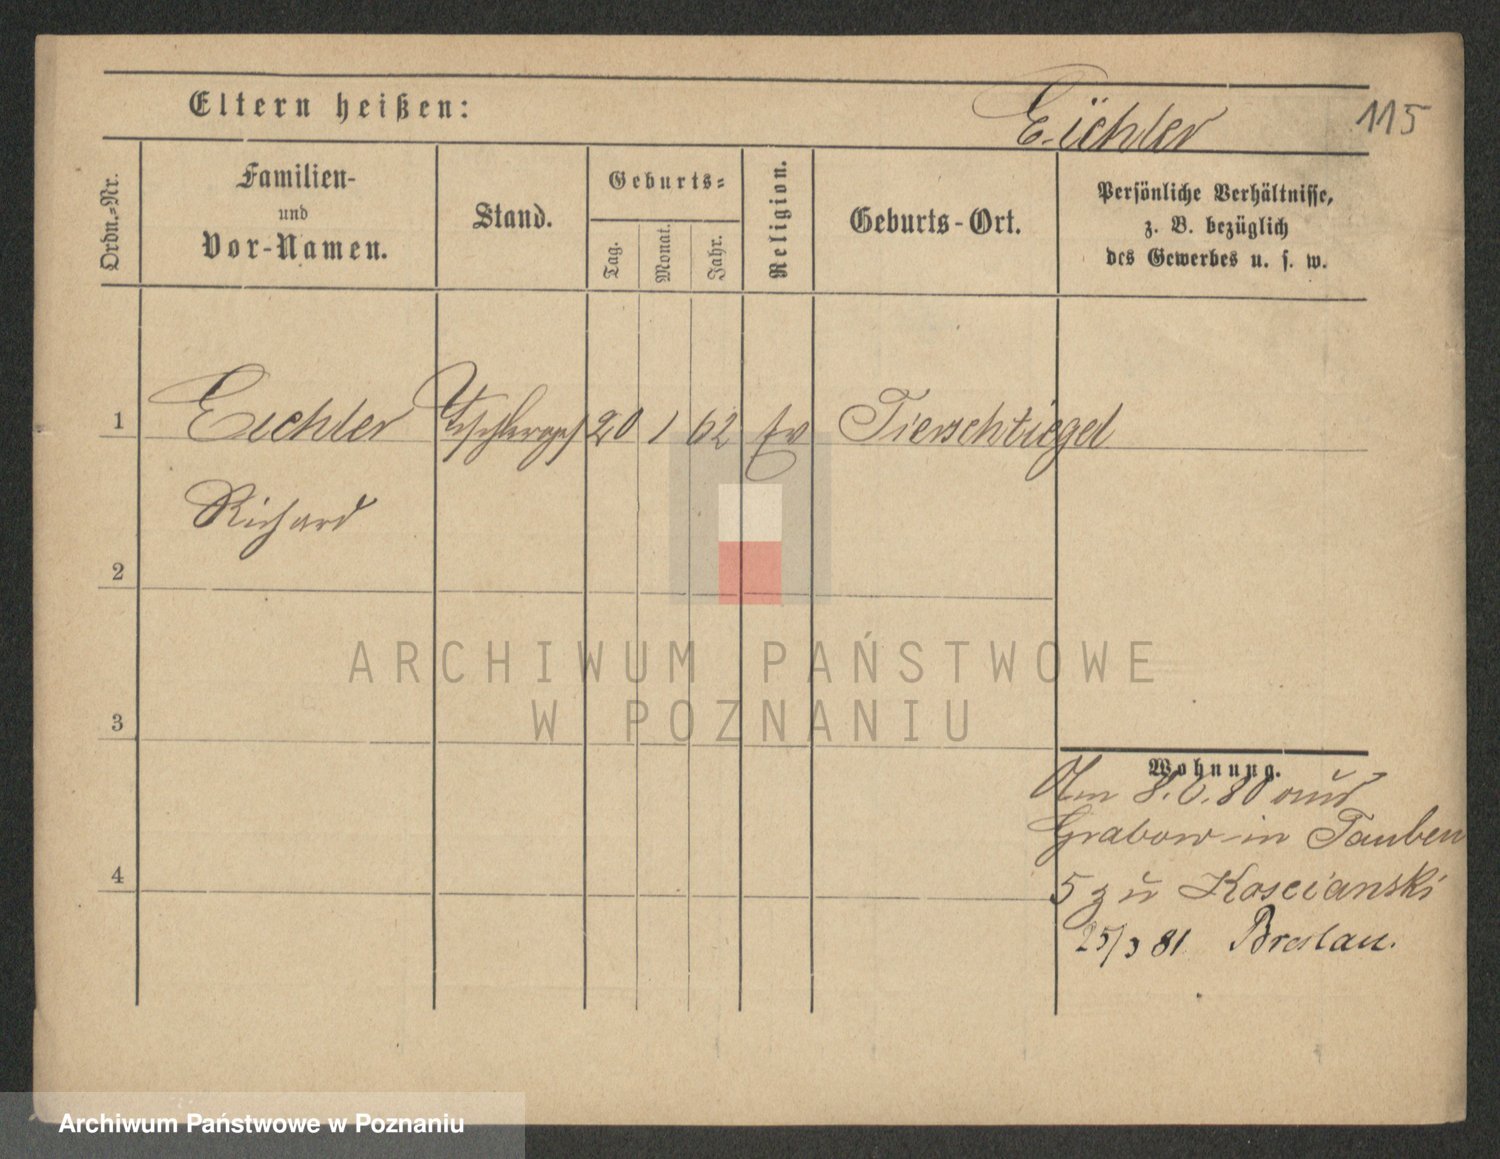 Eltern heißen:
Eichler
115
Ordn.-Nr.
Familien-
und
Vor-Namen.
Stand.
Geburts-
Tag.
Monat.
Jahr.
Religion.
Geburts-Ort.
Persönliche Verhältnisse,
z. B. bezüglich
des Gewerbes u. s. w.
1 Eichler 20 1 62 Ev Tierschtiegel
Richard
2
3
4
ARCHIWUM PAŃSTWOWE
W POZNANIU
Wohnung.
Am 8. 80 aus
Grabow in Tauben
5 zu Koscianski
25/3 81 Breslau.
Archiwum Państwowe w Poznaniu